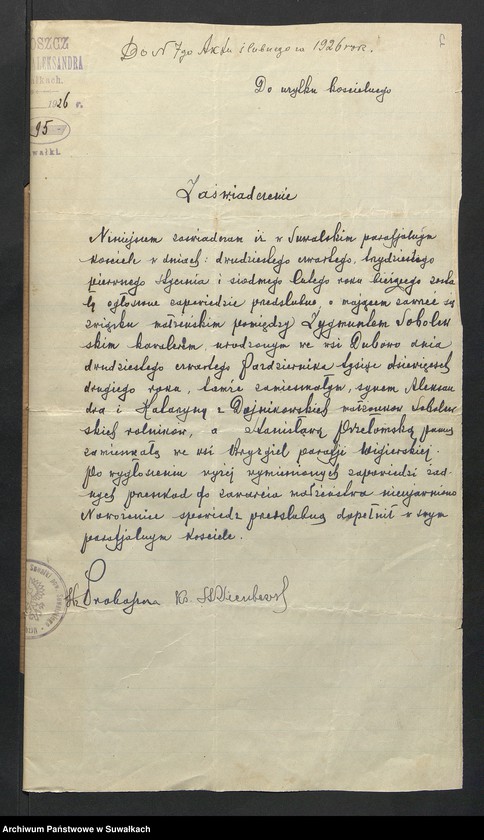 Do N 7go Aktu ślubnego za 1926 rok.
OSZCZ
ALEKSANDRA
wałkach.
1926 r.
95
Suwałki.
Do użytku kościelnego
Zaświadczenie
Niniejszem zaświadczam iż w Suwalskim parafjalnym
kościele w dniach: dwudziestego czwartego, trzydziestego
pierwszego stycznia i siódmego lutego roku bieżącego zosta
ły ogłoszone zapowiedzie przedślubne, o mającem zawrzeć się
związku małżeńskim pomiędzy Zygmuntem Sobolew
skim kawalerem, urodzonym we wsi Dubowo dnia
dwudziestego czwartego Października tysiąc dziewięćset
drugiego roku, tamże zamieszkałym, synem Aleksan
dra i Katarzyny z małżonków Sobolew
skich rolników, a Stanisławą Przełomską panną
zamieszkałą we wsi Bryzgiel parafji Wigierskiej.
Po wygłoszeniu wyżej wymienionych zapowiedzi żad-
nych przeszkód do zawarcia małżeństwa nieujawniono
Nowożeniec spowiedź przedślubną dopełnił w swym
parafjalnym kościele.
Proboszcza Ks.
Archiwum Państwowe w Suwałkach